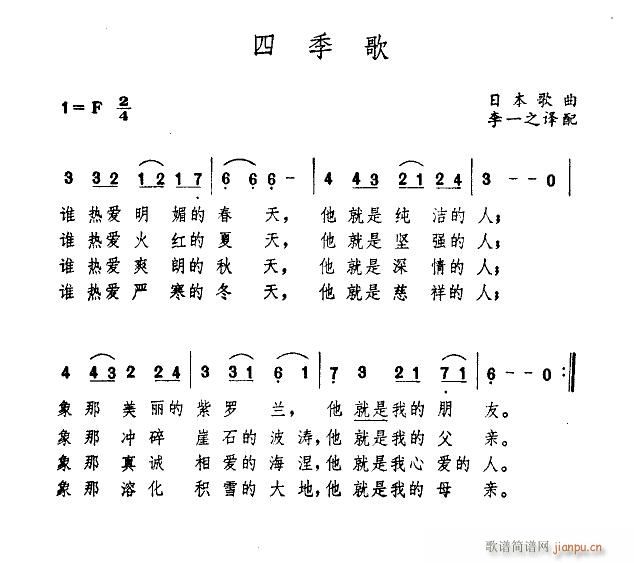 四季歌
1=F 2/4
日本歌曲
李一之译配
3 3 2 1 2 1 7 | 6 6 6 - | 4 4 3 2 1 2 4 | 3 - - 0 |
谁热爱明媚的春天，他就是纯洁的人；
谁热爱火红的夏天，他就是坚强的人；
谁热爱爽朗的秋天，他就是深情的人；
谁热爱严寒的冬天，他就是慈祥的人；
4 4 3 2 2 4 | 3 3 1 6 1 | 7 3 2 1 7 1 | 6 - - 0 :||
象那美丽的紫罗兰，他就是我的朋友。
象那冲碎崖石的波涛，他就是我的父亲。
象那真诚相爱的海涅，他就是我心爱的人。
象那溶化积雪的大地，他就是我的母亲。
歌谱简谱网
jianpu.cn